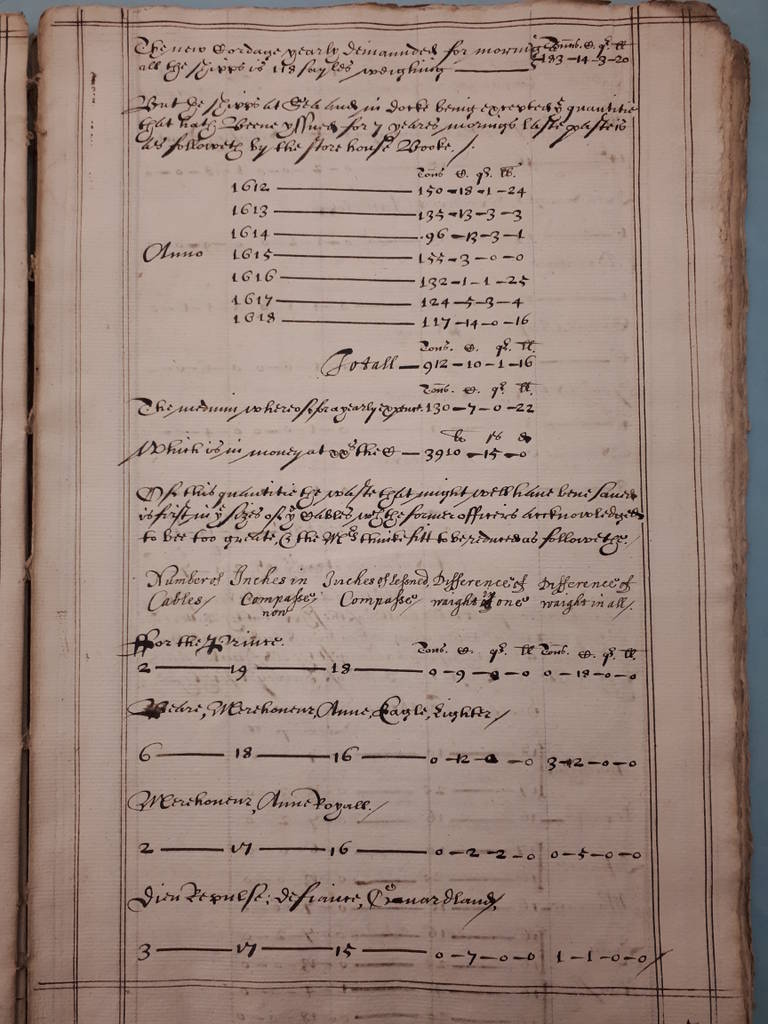 The new Cordage yearly demaunded for moringe Tonns. C. qr. ll
all the shipps is 118 sayles weighing —— 183-14-3-20
But the shipps at Sea and in docke being excepted, quantitie
that hath beene yssued for 7 yeares moorings laste paste is
as followeth by the store house Booke /.
Tons C. qr. ll.
1612 —— 150-18-1-24
1613 —— 135-13-3-3
1614 —— 96-13-3-1
Anno 1615 —— 155-3-0-0
1616 —— 132-1-1-25
1617 —— 124-5-3-4
1618 —— 117-14-0-16
Tons. C. qr. ll.
Totall — 912-10-1-16
Tons. C. qr. ll.
The medium whereof for a yearly expence 130-7-0-22
li s d
Which is in money at xxxs the C — 3910-15-0
Of this quantitie the waste that might well have bene saved
is first in ye sizes of ye Cables wch the former officers acknowledged
to bee too greate, & the Mrs thinke fitt to be reduced as followethe./
Number of Inches in Inches of lessened Difference of Difference of
Cables/ Compasse Compasse waight of one waight in all/.
now
ffor the Prince.
Tons. C. qr. ll Tons. C. qr. ll.
2 —— 19 —— 18 —— 0-9-0-0 0-18-0-0
Beare, Merehoneur, Anne, Eagle, Lighter/
6 —— 18 —— 16 —— 0-12-0-0 3-12-0-0
Merehoneur, Anne Royall./
2 —— 17 —— 16 —— 0-2-2-0 0-5-0-0
Dieu Repulse, defiance,
3 —— 17 —— 15 —— 0-7-0-0 1-1-0-0/